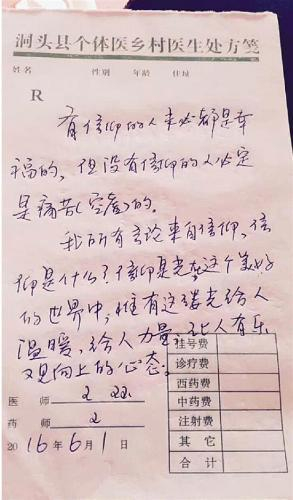 洞头县个体医乡村医生处方笺
姓名 性别 年龄 住址
R
有信仰的人未必都是幸
福的，但没有信仰的人必定
是痛苦(空虚)的.
我所有言论来自信仰，信
仰是什么？信仰是光在这个美好
的世界中，惟有这缕光给人
温暖，给人力量，让人有乐
观向上的心态。
医 师
药 师
2016年6月1日
挂号费
诊疗费
西药费
中药费
注射费
其 它
合 计